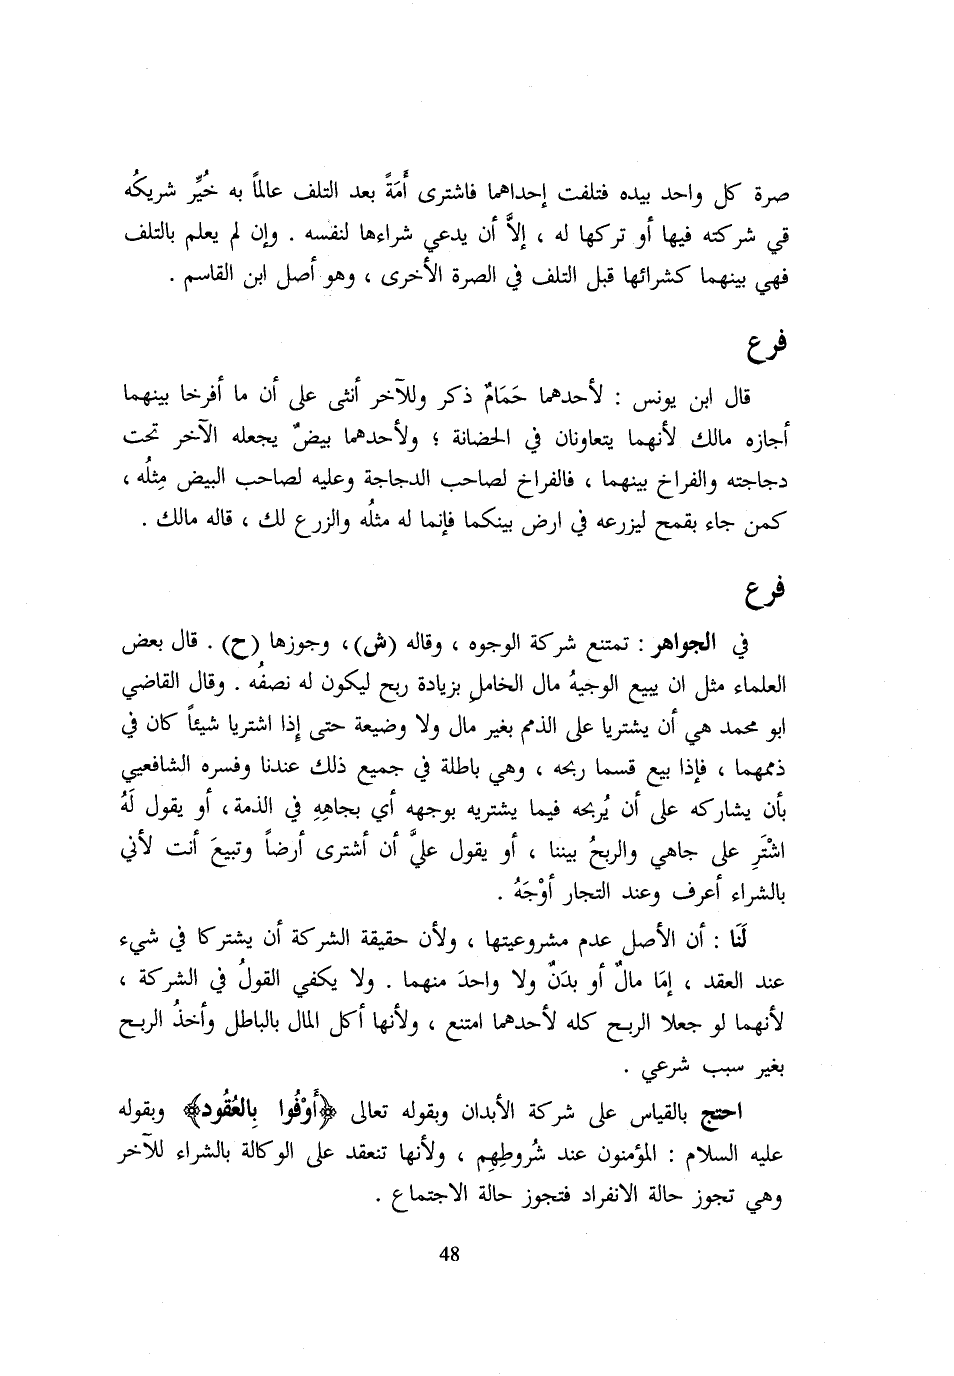 صرة كل واحد بيده فتلفت إحداهما فاشترى أَمَةً بعد التلف عالماً به خُيِّر شريكُه
قي شركته فيها أو تركها له ، إلاَّ أن يدعي شراءها لنفسه . وإن لم يعلم بالتلف
فهي بينهما كشرائها قبل التلف في الصرة الأخرى ، وهو أصل ابن القاسم .
فرع
قال ابن يونس : لأحدهما حَمَامٌ ذكر وللآخر أنثى على أن ما أفرخا بينهما
أجازه مالك لأنهما يتعاونان في الحضانة ؛ ولأحدهما بيضٌ يجعله الآخر تحت
دجاجته والفراخ بينهما ، فالفراخ لصاحب الدجاجة وعليه لصاحب البيض مِثلُه ،
كمن جاء بقمح ليزرعه في ارض بينكما فإنما له مثلُه والزرع لك ، قاله مالك .
فرع
في الجواهر : تمتنع شركة الوجوه ، وقاله (ش)، وجوزها (ح) . قال بعض
العلماء مثل ان يبيع الوجيهُ مال الخاملِ بزيادة ربح ليكون له نصفُه . وقال القاضي
ابو محمد هي أن يشتريا على الذمم بغير مال ولا وضيعة حتى إذا اشتريا شيئاً كان في
ذممهما ، فإذا بيع قسما ربحه ، وهي باطلة في جميع ذلك عندنا وفسره الشافعيي
بأن يشاركه على أن يُربحه فيما يشتريه بوجهه أي بجاهِهِ في الذمة، أو يقول لَهُ
اشْتَرِ على جاهي والربحُ بيننا ، أو يقول عليَّ أن أشترى أرضاً وتبيعَ أنت لأني
بالشراء أعرف وعند التجار أوْجَهُ .
لَنَا : أن الأصل عدم مشروعيتها ، ولأن حقيقة الشركة أن يشتركا في شيء
عند العقد ، إمَا مالٌ أو بدَنٌ ولا واحدَ منهما . ولا يكفي القولُ في الشركة ،
لأنهما لو جعلا الربح كله لأحدهما امتنع ، ولأنها أكل المال بالباطل وأخذُ الربح
بغير سبب شرعي .
احتج بالقياس على شركة الأبدان وبقوله تعالى ﴿أَوْفُوا بِالعُقُود﴾ وبقوله
عليه السلام : المؤمنون عند شُروطِهِم ، ولأنها تنعقد على الوكالة بالشراء للآخر
وهي تجوز حالة الانفراد فتجوز حالة الاجتماع .
48